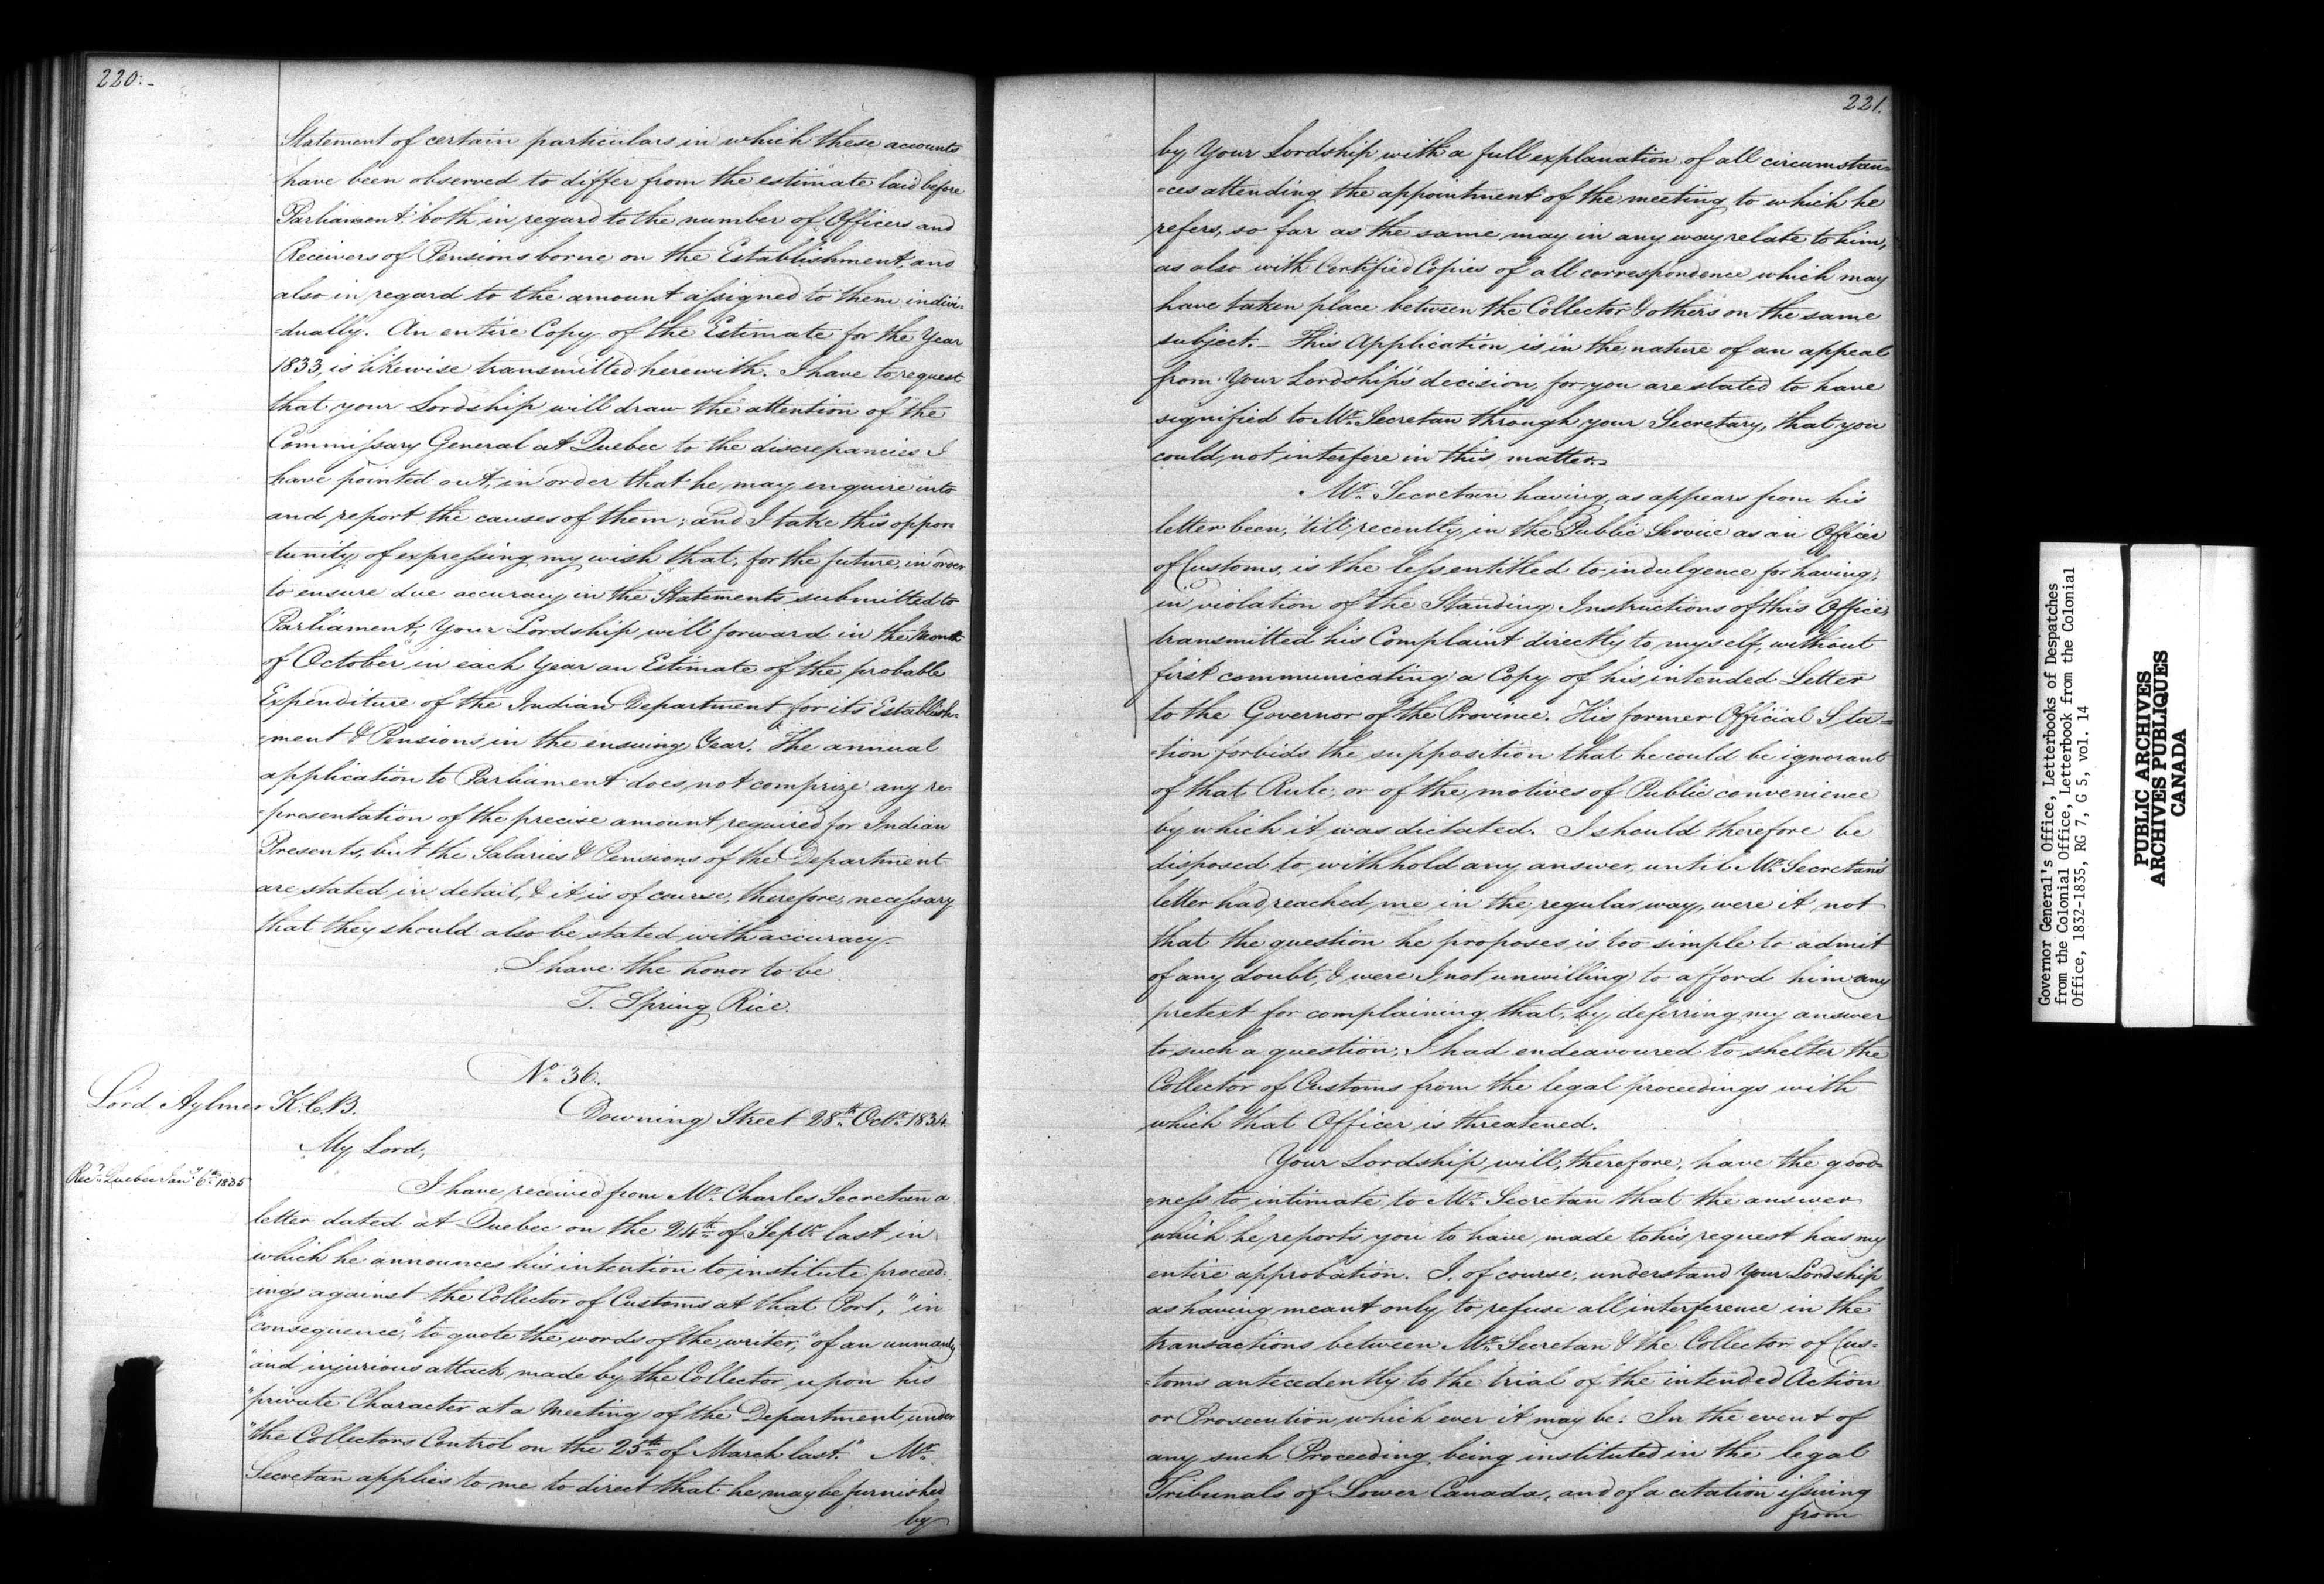 220:-
Statement of certain particulars in which these accounts
have been observed to differ from the estimate laid before
Parliament both in regard to the number of Officers and
Receivers of Pensions borne on the Establishment, and
also in regard to the amount assigned to them indivi-
-dually. An entire Copy of the Estimate for the Year
1833, is likewise transmitted herewith. I have to request
that your Lordship will draw the attention of the
Commissary General at Quebec to the discrepancies I
have pointed out, in order that he may enquire into
and report the causes of them; and I take this oppor-
-tunity of expressing my wish that, for the future, in order
to ensure due accuracy in the Statements submitted to
Parliament, Your Lordship will forward in the Month
of October in each Year an Estimate of the probable
Expenditure of the Indian Department for its Establish-
-ment & Pensions in the ensuing Year. The annual
application to Parliament does not comprize any re-
-presentation of the precise amount required for Indian
Presents, but the Salaries & Pensions of the Department
are stated in detail, & it is of course, therefore, necessary
that they should also be stated with accuracy.-
I have the honor to be
T. Spring Rice.
No. 36.
Lord Aylmer K.C.B.
Downing Street 28th Octr. 1834.
My Lord,
Recd. Quebec Jany. 6th 1835
I have received from Mr. Charles Secretan a
letter dated at Quebec on the 24th of Septr. last in
which he announces his intention to institute proceed-
-ings against the Collector of Customs at that Port, "in
"consequence," to quote the words of the writer, "of an unmanly
"and injurious attack made by the Collector upon his
"private Character at a Meeting of the Department under
"the Collectors Control on the 25th of March last." Mr.
Secretan applies to me to direct that he may be furnished
by
221.
by Your Lordship with a full explanation of all circumstan=
=ces attending the appointment of the meeting to which he
refers, so far as the same may in any way relate to him,
as also with Certified Copies of all correspondence which may
have taken place between the Collector & others on the same
subject.- This Application is in the nature of an appeal
from Your Lordship's decision, for you are stated to have
signified to Mr. Secretan through your Secretary, that you
could not interfere in this matter.-
Mr. Secretan having, as appears from his
letter been, 'till recently, in the Public Service as an Officer
of Customs, is the less entitled to indulgence for having,
in violation of the Standing Instructions of this Office,
transmitted his Complaint directly to myself, without
first communicating a Copy of his intended Letter
to the Governor of the Province. His former Official Sta=
=tion forbids the supposition that he could be ignorant
of that Rule, or of the motives of Public convenience
by which it was dictated. I should therefore be
disposed to withhold any answer, until Mr. Secretan's
letter had reached me in the regular way, were it not
that the question he proposes is too simple to admit
of any doubt, & were I not unwilling to afford him any
pretext for complaining that, by deferring my answer
to such a question, I had endeavoured to shelter the
Collector of Customs from the legal proceedings with
which that Officer is threatened.
Your Lordship will, therefore, have the good=
=ness to intimate to Mr. Secretan that the answer
which he reports you to have made to his request has my
entire approbation. I, of course, understand Your Lordship
as having meant only to refuse all interference in the
transactions between Mr. Secretan & the Collector of Cus=
=toms antecedently to the trial of the intended Action
or Prosecution which ever it may be. In the event of
any such Proceeding being instituted in the legal
Tribunals of Lower Canada, and of a citation issuing
from
Governor General's Office, Letterbooks of Despatches
from the Colonial Office, Letterbook from the Colonial
Office, 1832-1835, RG 7, G 5, vol. 14
PUBLIC ARCHIVES
ARCHIVES PUBLIQUES
CANADA